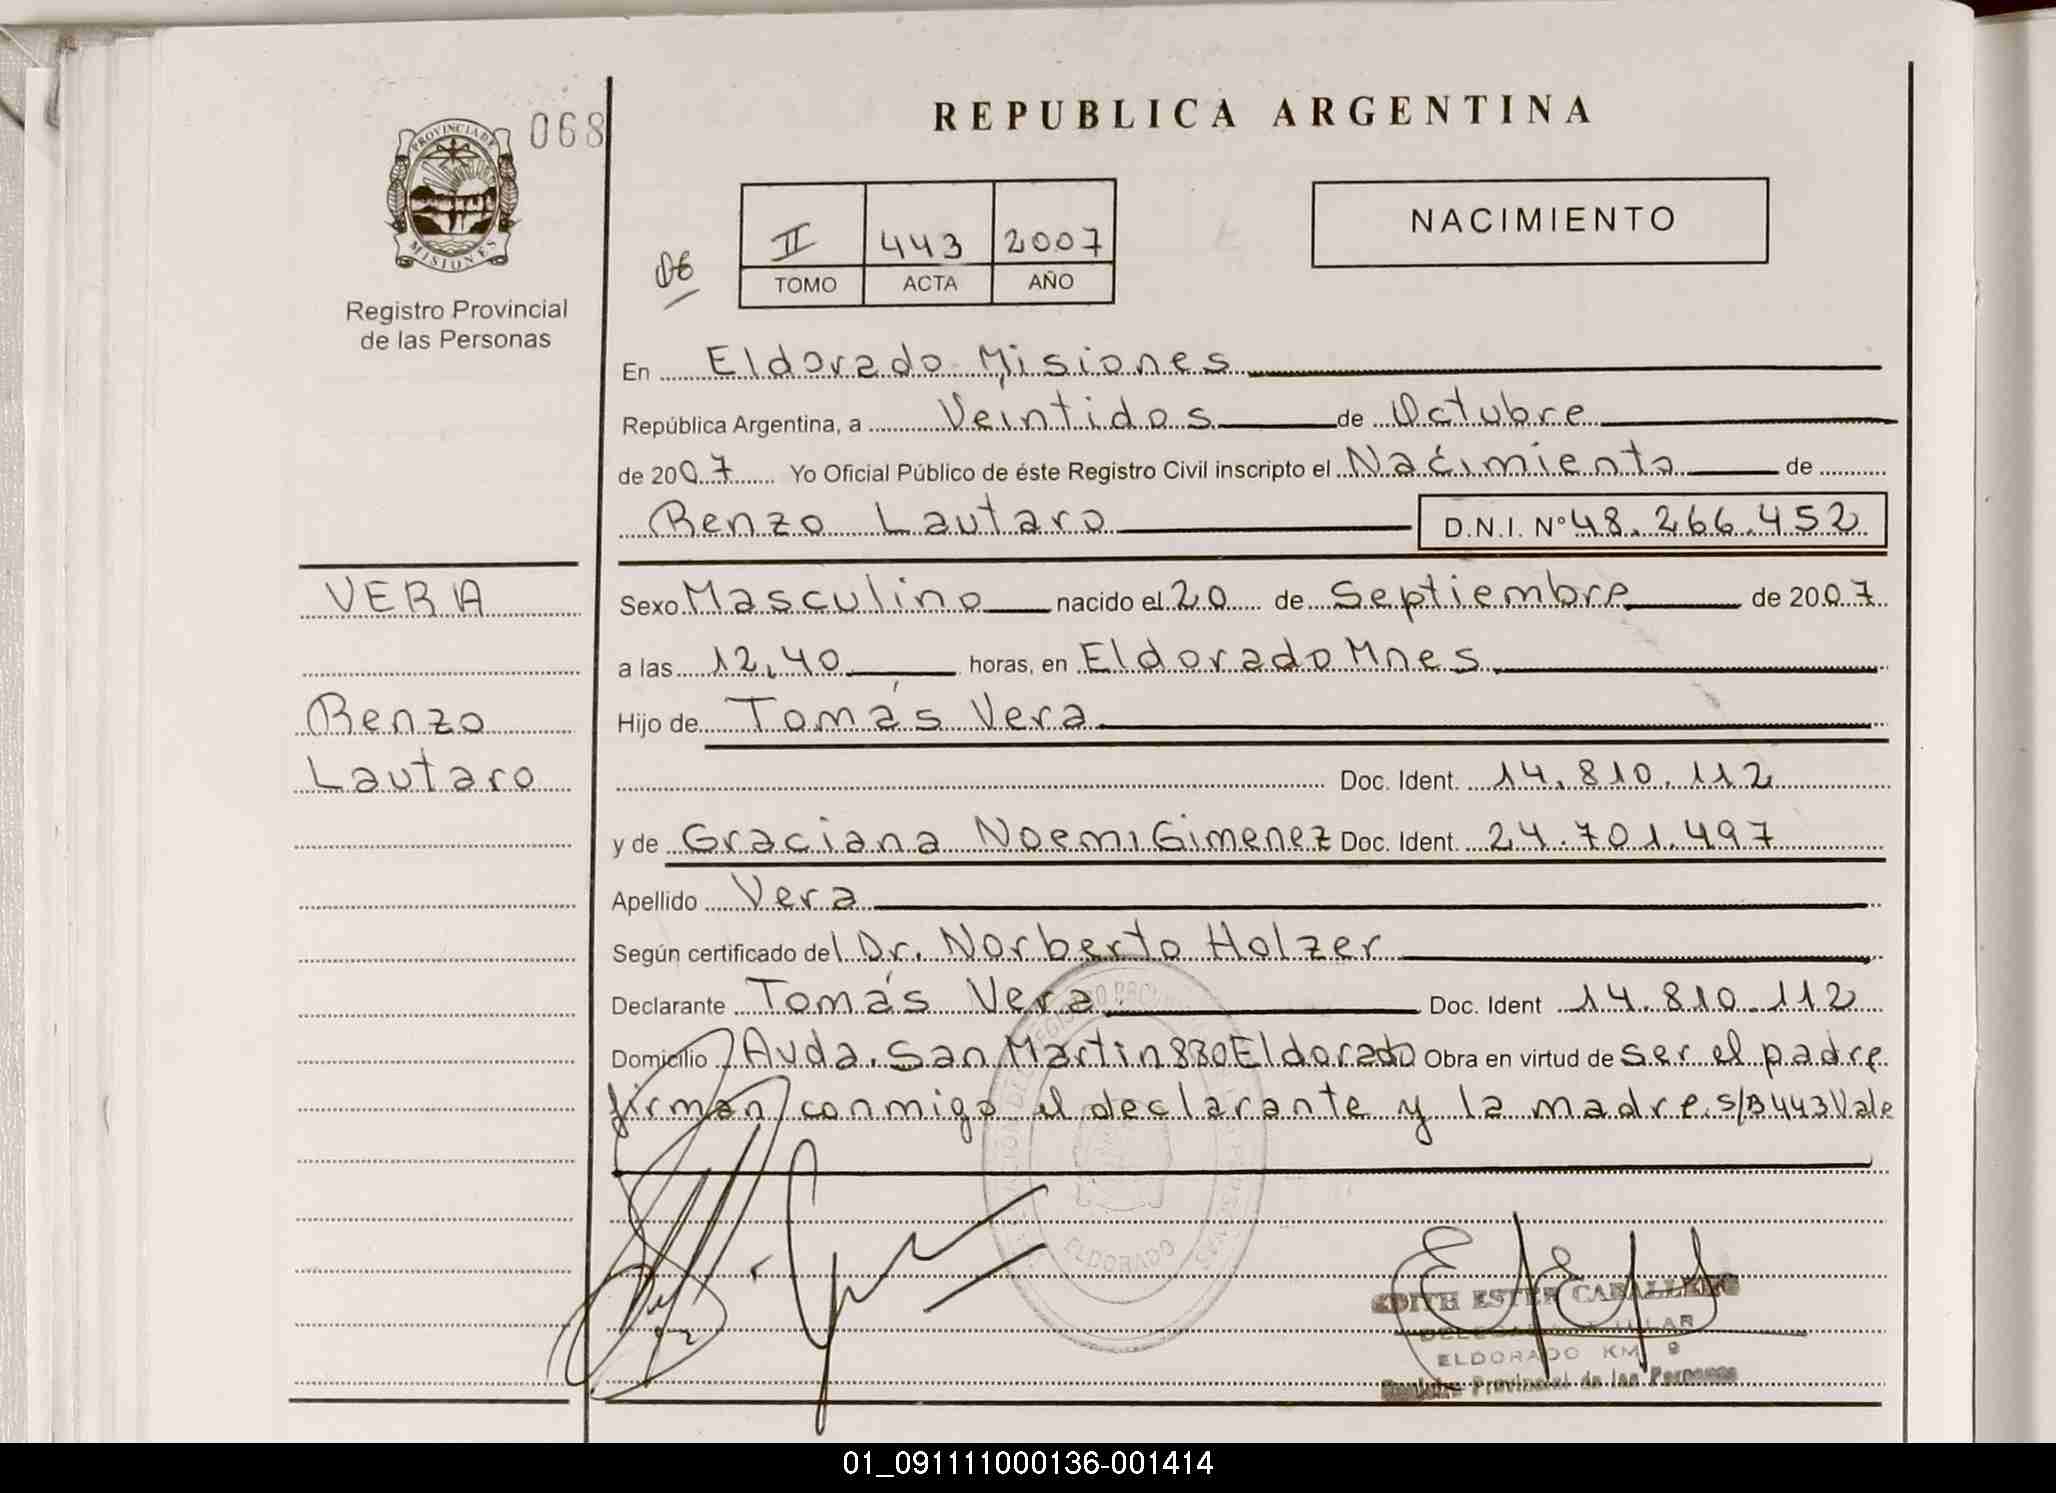 068
PROVINCIA DE
MISIONES
Registro Provincial
de las Personas
REPUBLICA ARGENTINA
II 443 2007
TOMO ACTA AÑO
06
NACIMIENTO
En Eldorado Misiones
República Argentina, a Veintidos de Octubre
de 2007 Yo Oficial Público de éste Registro Civil inscripto el Nacimiento de
Renzo Lautaro D.N.I. Nº 48.266.452
VERA
Renzo
Lautaro
Sexo Masculino nacido el 20 de Septiembre de 2007
a las 12,40 horas, en Eldorado Mnes
Hijo de Tomás Vera
Doc. Ident. 14.810.112
y de Graciana Noemi Gimenez Doc. Ident. 24.701.497
Apellido Vera
Según certificado del Dr. Norberto Holzer
Declarante Tomás Vera Doc. Ident 14.810.112
Domicilio Avda. San Martin 880 Eldorado Obra en virtud de ser el padre
firman conmigo el declarante y la madre. S/B 443 Vale
ELDORADO
EDITH ESTER CABALLERO
ELDORADO KM 9
Registro Provincial de las Personas
01_091111000136-001414